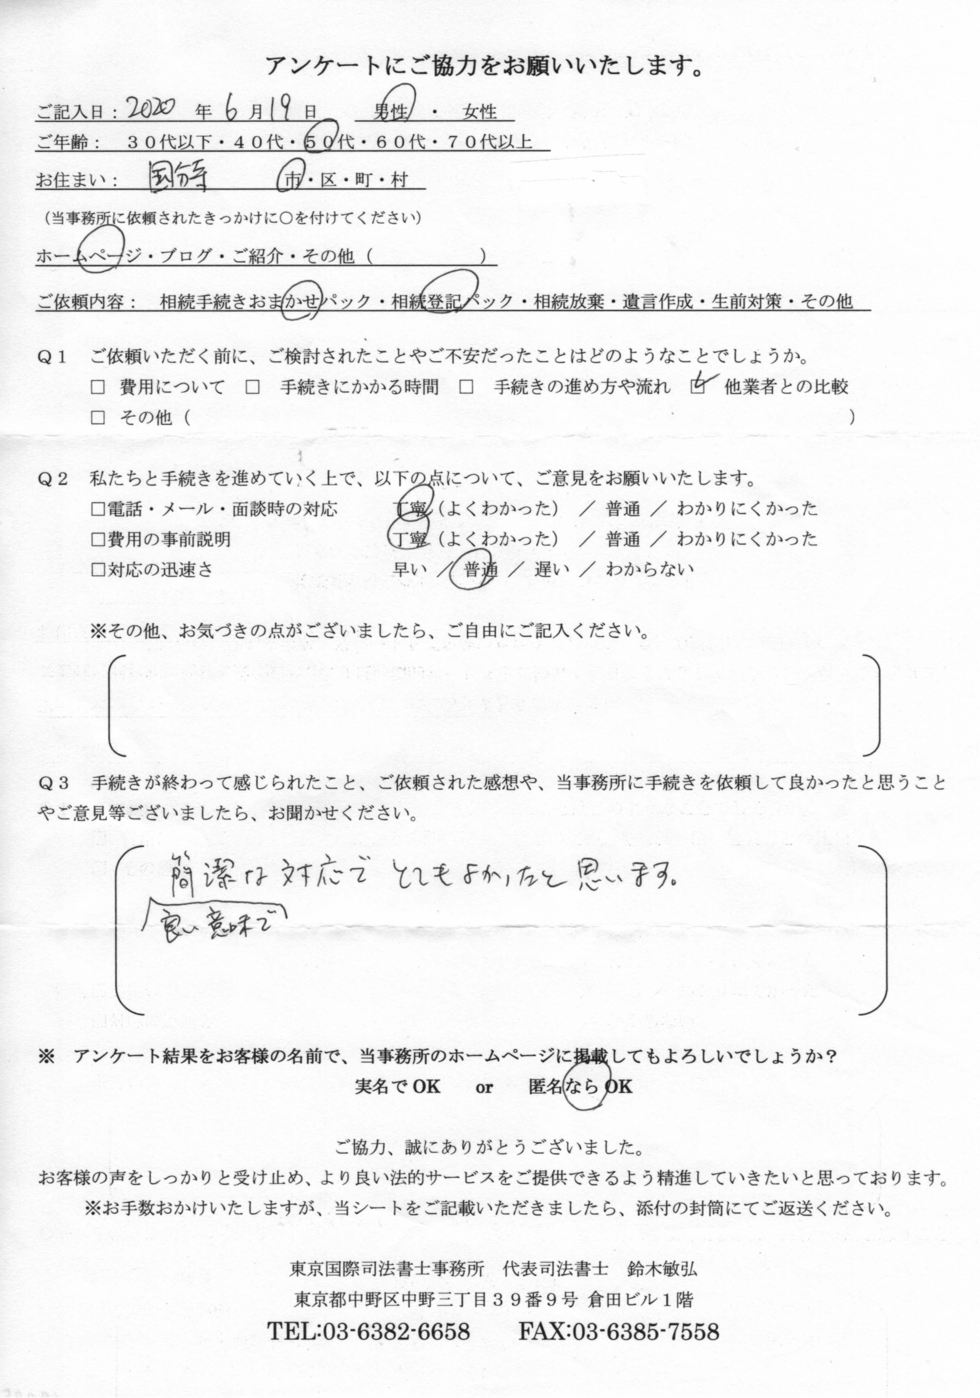 アンケートにご協力をお願いいたします。
ご記入日：2020 年 6 月 19 日 男性 ・ 女性
ご年齢： ３０代以下・４０代・５０代・６０代・７０代以上
お住まい： 国分寺 市・区・町・村
（当事務所に依頼されたきっかけに〇を付けてください）
ホームページ・ブログ・ご紹介・その他（ ）
ご依頼内容： 相続手続きおまかせパック・相続登記パック・相続放棄・遺言作成・生前対策・その他
Ｑ１ ご依頼いただく前に、ご検討されたことやご不安だったことはどのようなことでしょうか。
□ 費用について □ 手続きにかかる時間 □ 手続きの進め方や流れ ☑ 他業者との比較
□ その他（ ）
Ｑ２ 私たちと手続きを進めていく上で、以下の点について、ご意見をお願いいたします。
□電話・メール・面談時の対応 丁寧（よくわかった） ／ 普通 ／ わかりにくかった
□費用の事前説明 丁寧（よくわかった） ／ 普通 ／ わかりにくかった
□対応の迅速さ 早い ／ 普通 ／ 遅い ／ わからない
※その他、お気づきの点がございましたら、ご自由にご記入ください。
Ｑ３ 手続きが終わって感じられたこと、ご依頼された感想や、当事務所に手続きを依頼して良かったと思うこと
やご意見等ございましたら、お聞かせください。
簡潔な対応で とてもよかったと思います。
良い意味で
※ アンケート結果をお客様の名前で、当事務所のホームページに掲載してもよろしいでしょうか？
実名で OK or 匿名なら OK
ご協力、誠にありがとうございました。
お客様の声をしっかりと受け止め、より良い法的サービスをご提供できるよう精進していきたいと思っております。
※お手数おかけいたしますが、当シートをご記載いただきましたら、添付の封筒にてご返送ください。
東京国際司法書士事務所 代表司法書士 鈴木敏弘
東京都中野区中野三丁目３９番９号 倉田ビル１階
TEL:03-6382-6658 FAX:03-6385-7558